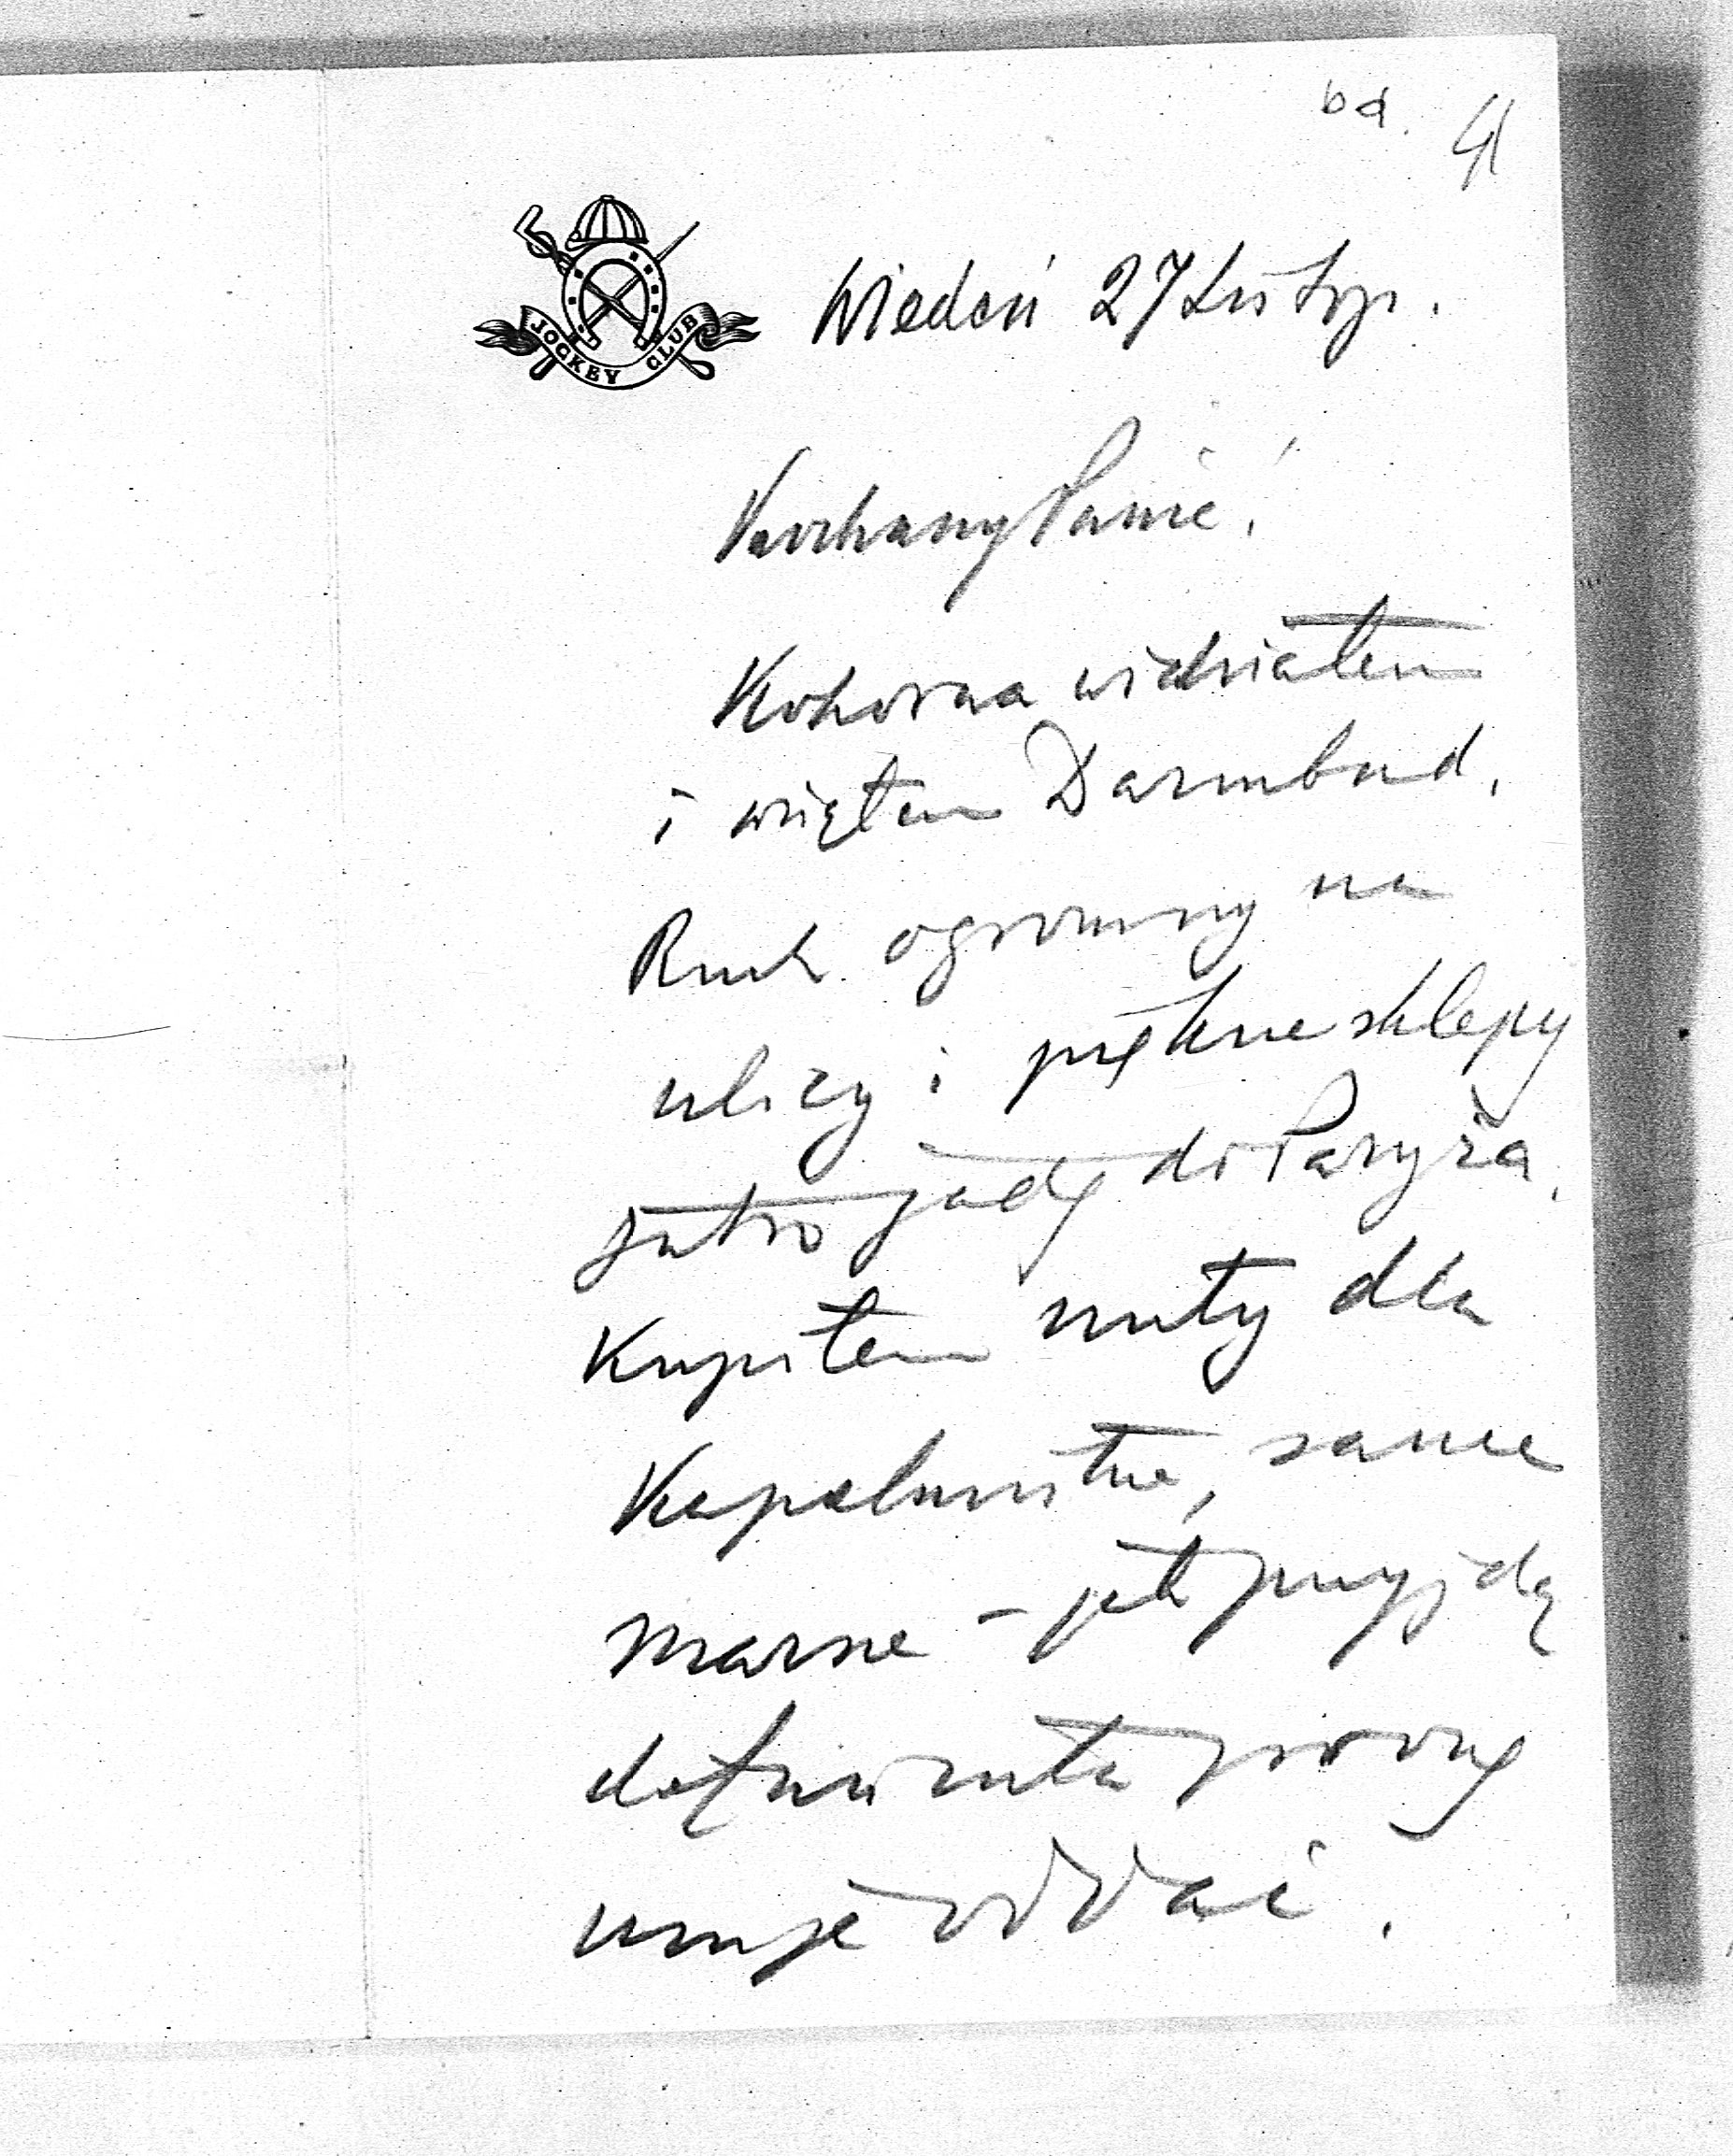 bd. 41
JOCKEY CLUB
Wiedeń 27 Listop.
Kochany Panie!
Kohorna widziałem
i wziąłem Darmband.
Ruch ogromny na
ulicy i piękne sklepy
jutro jadę do Paryża.
Kupiłem nuty dla
Kapelmistrza, same
marsze – jak przyjdą
proszę
mu je oddać.